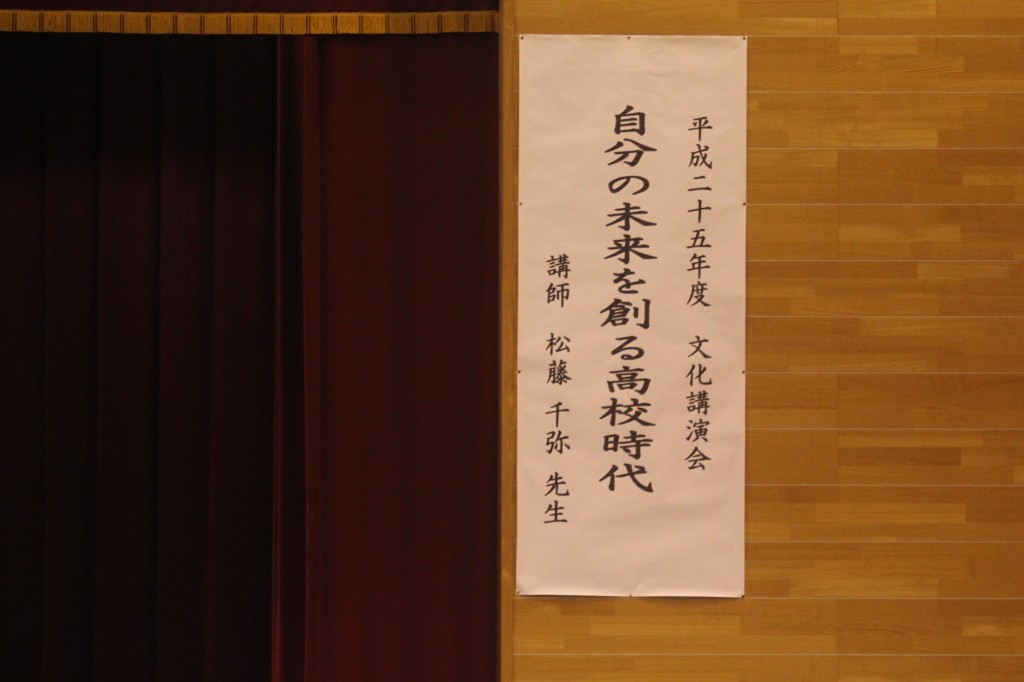 平成二十五年度 文化講演会
自分の未来を創る高校時代
講師 松藤 千弥 先生